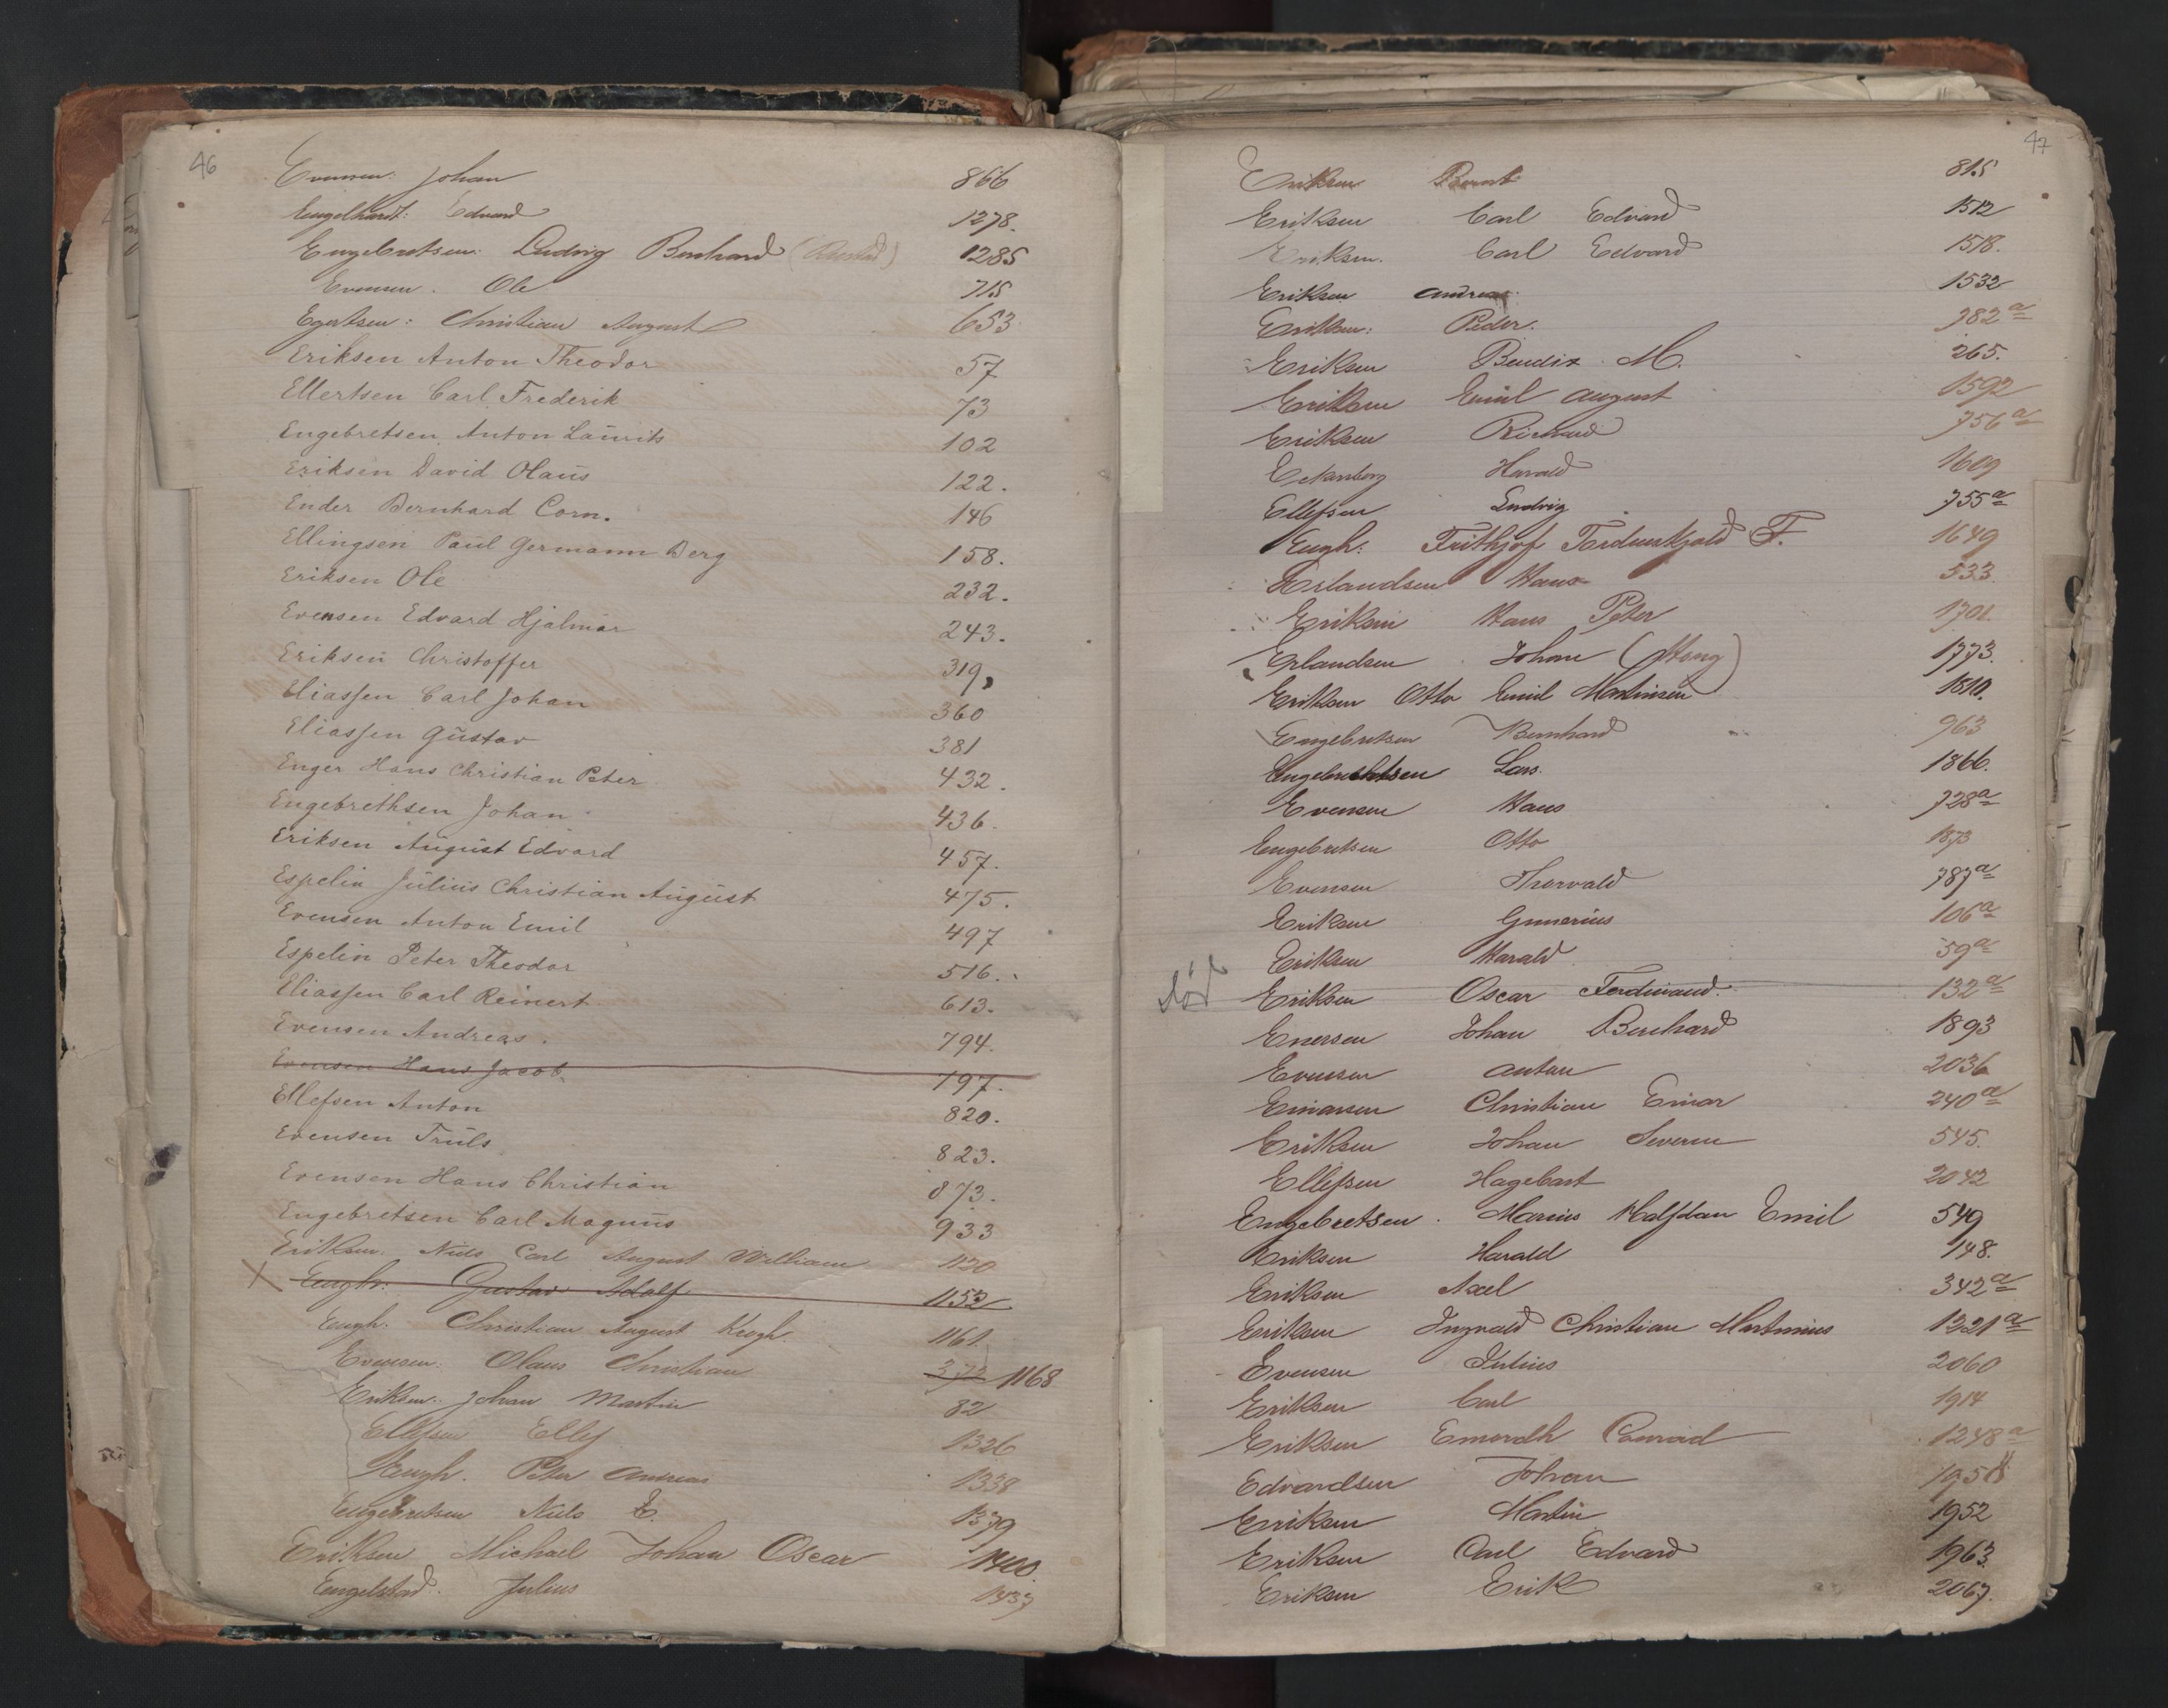 46
Evensen: Johan 866
Engelhardt: Edvard 1278.
Engebretsen: Ludvig Bernhard 1285
Evensen. Ole 715
Egertsen: Christian August 653
Eriksen Anton Theodor 57
Ellertsen Carl Frederik 73
Engebretsen Anton Laurits 102
Eriksen David Olaus 122.
Ender Bernhard Corn. 146
Ellingsen Paul Germann Berg 158.
Eriksen Ole 232.
Evensen Edvard Hjalmar 243.
Eriksen Christoffer 319,
Eliassen Carl Johan 360
Eliassen Gustav 381
Enger Hans Christian Peter 432.
Engebrethsen Johan 436.
Eriksen August Edvard 457.
Espelin Julius Christian August 475.
Evensen Anton Emil 497
Espelin Peter Theodor 516.
Eliassen Carl Reinert 613.
Evensen Andreas. 794.
Evensen Hans Jacob 797.
Ellefsen Anton 820.
Evensen Truls 823.
Evensen Hans Christian 873.
Engebretsen Carl Magnus 933
Eriksen. Niels Carl August William 1120
X Eugh: Gustav Adolf 1152
Eugh. Christian August Krogh 1161.
Evensen: Olaus Christian 372 1168
Eriksen: Johan Martin 82
Ellefsen Ellef 1326
Eugh. Peter Andreas 1338
Engebretsen Niels E. 1379
Eriksen Michael Johan Oscar 1400.
Engelstad. Julius 1437
47
Eriksen Bernt 815
Eriksen Carl Edvard 1512
Eriksen. Carl Edvard 1518.
Eriksen Andreas 1532
Eriksen: Peder. 982 a
Eriksen Bendix M. 265.
Eriksen Emil August 1592
Eriksen Richard 756 a
Harald 1609
Ellefsen Ludvig 755 a
Eugh: Frithjof Tordenskjold F. 1649
Erlandsen Hans 533.
Eriksen Hans Peter 1701.
Erlandsen Johan 1773.
Eriksen Otto Emil Martinsen 1810.
Engebretsen Bernhard 963
Engebrethsen Lars. 1866.
Evensen Hans 728 a
Engebretsen Otto 1873
Evensen Thorvald 787 a
Eriksen Gunerius 106 a
Eriksen Harald 59 a
død Eriksen Oscar Ferdinand. 132 a
Enersen Johan Bernhard 1893
Evensen Anton 2036
Einarsen Christian Einar 240 a
Eriksen Johan Severin 545.
Ellefsen Hagebart 2042
Engebretsen. Marius Halfdan Emil 549
Eriksen Harald 148.
Eriksen Axel 342 a
Eriksen Ingvald Christian Martinius 1221 a
Evensen Julius 2060
Eriksen Carl 1914
Eriksen Conrad 1248 a
Edvardsen Johan
Eriksen Martin 1952
Eriksen Carl Edvard 1963.
Eriksen Erik 2067.